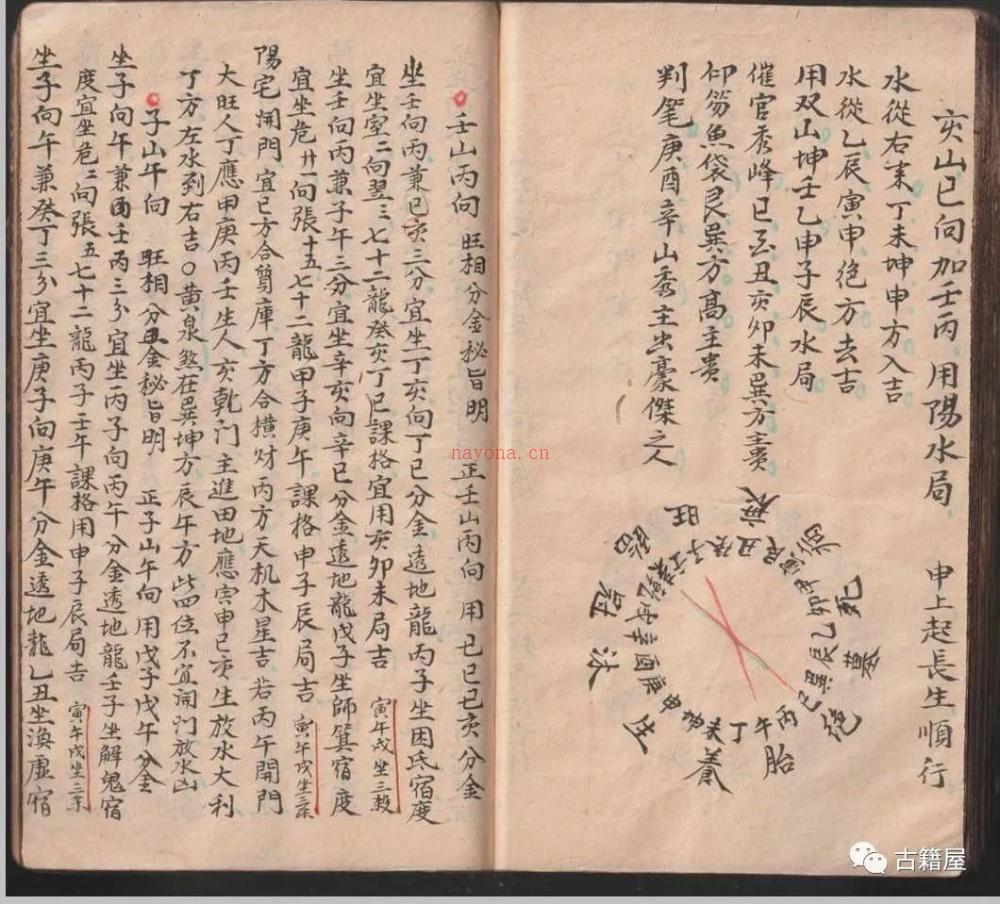 亥山巳向加壬丙用陽水局 申上起長生順行
水從右來丁未坤申方入吉
水從乙辰寅甲绝方去吉
用双山坤壬乙申子辰水局
催官秀峰巳酉丑亥卯未巽方主貴
仰笏魚袋艮巽方高主贵
判笔庚酉辛山秀主出豪傑之人
衰
旺
臨
冠
沐
生
養
胎
绝
墓
死
病
壬子癸丑艮寅甲卯乙辰巽巳丙午丁未坤申庚酉辛戌乾亥
壬山丙向 旺相分金秘旨明 正壬山丙向用己巳己亥分金
坐壬向丙兼巳亥三分宜坐丁亥向丁巳分金透地龍丙子坐困氐宿度
宜坐室二向翌三七十二龍癸亥丁巳課格宜用亥卯未局吉 寅午戌坐三殺
坐壬向丙兼子午三分宜坐辛亥向辛巳分金透地龍戊子坐師箕宿度
宜坐危廿一向張十五七十二龍甲子庚午課格申子辰局吉 寅午戌坐三杀
陽宅開門宜巳方合貿庫丁方合横财丙方天机木星吉若丙午開門
大旺人丁應甲庚丙壬生人亥乾门主進田地應寅申巳亥生放水大利
丁方左水到右吉〇黄泉煞在巽坤方辰午方此四位不宜開门放水凶
子山午向 旺相分金秘旨明 正子山午向用戊子戊午分金
坐子向午兼壬丙三分宜坐丙子向丙午分金透地龍壬子坐解鬼宿
度宜坐危二向張五七十二龍丙子壬午課格用申子辰局吉 寅午戌坐三杀
坐子向午兼癸丁三分宜坐庚子向庚午分金透地龍乙丑坐渙虚宿
nayona.cn
古籍屋